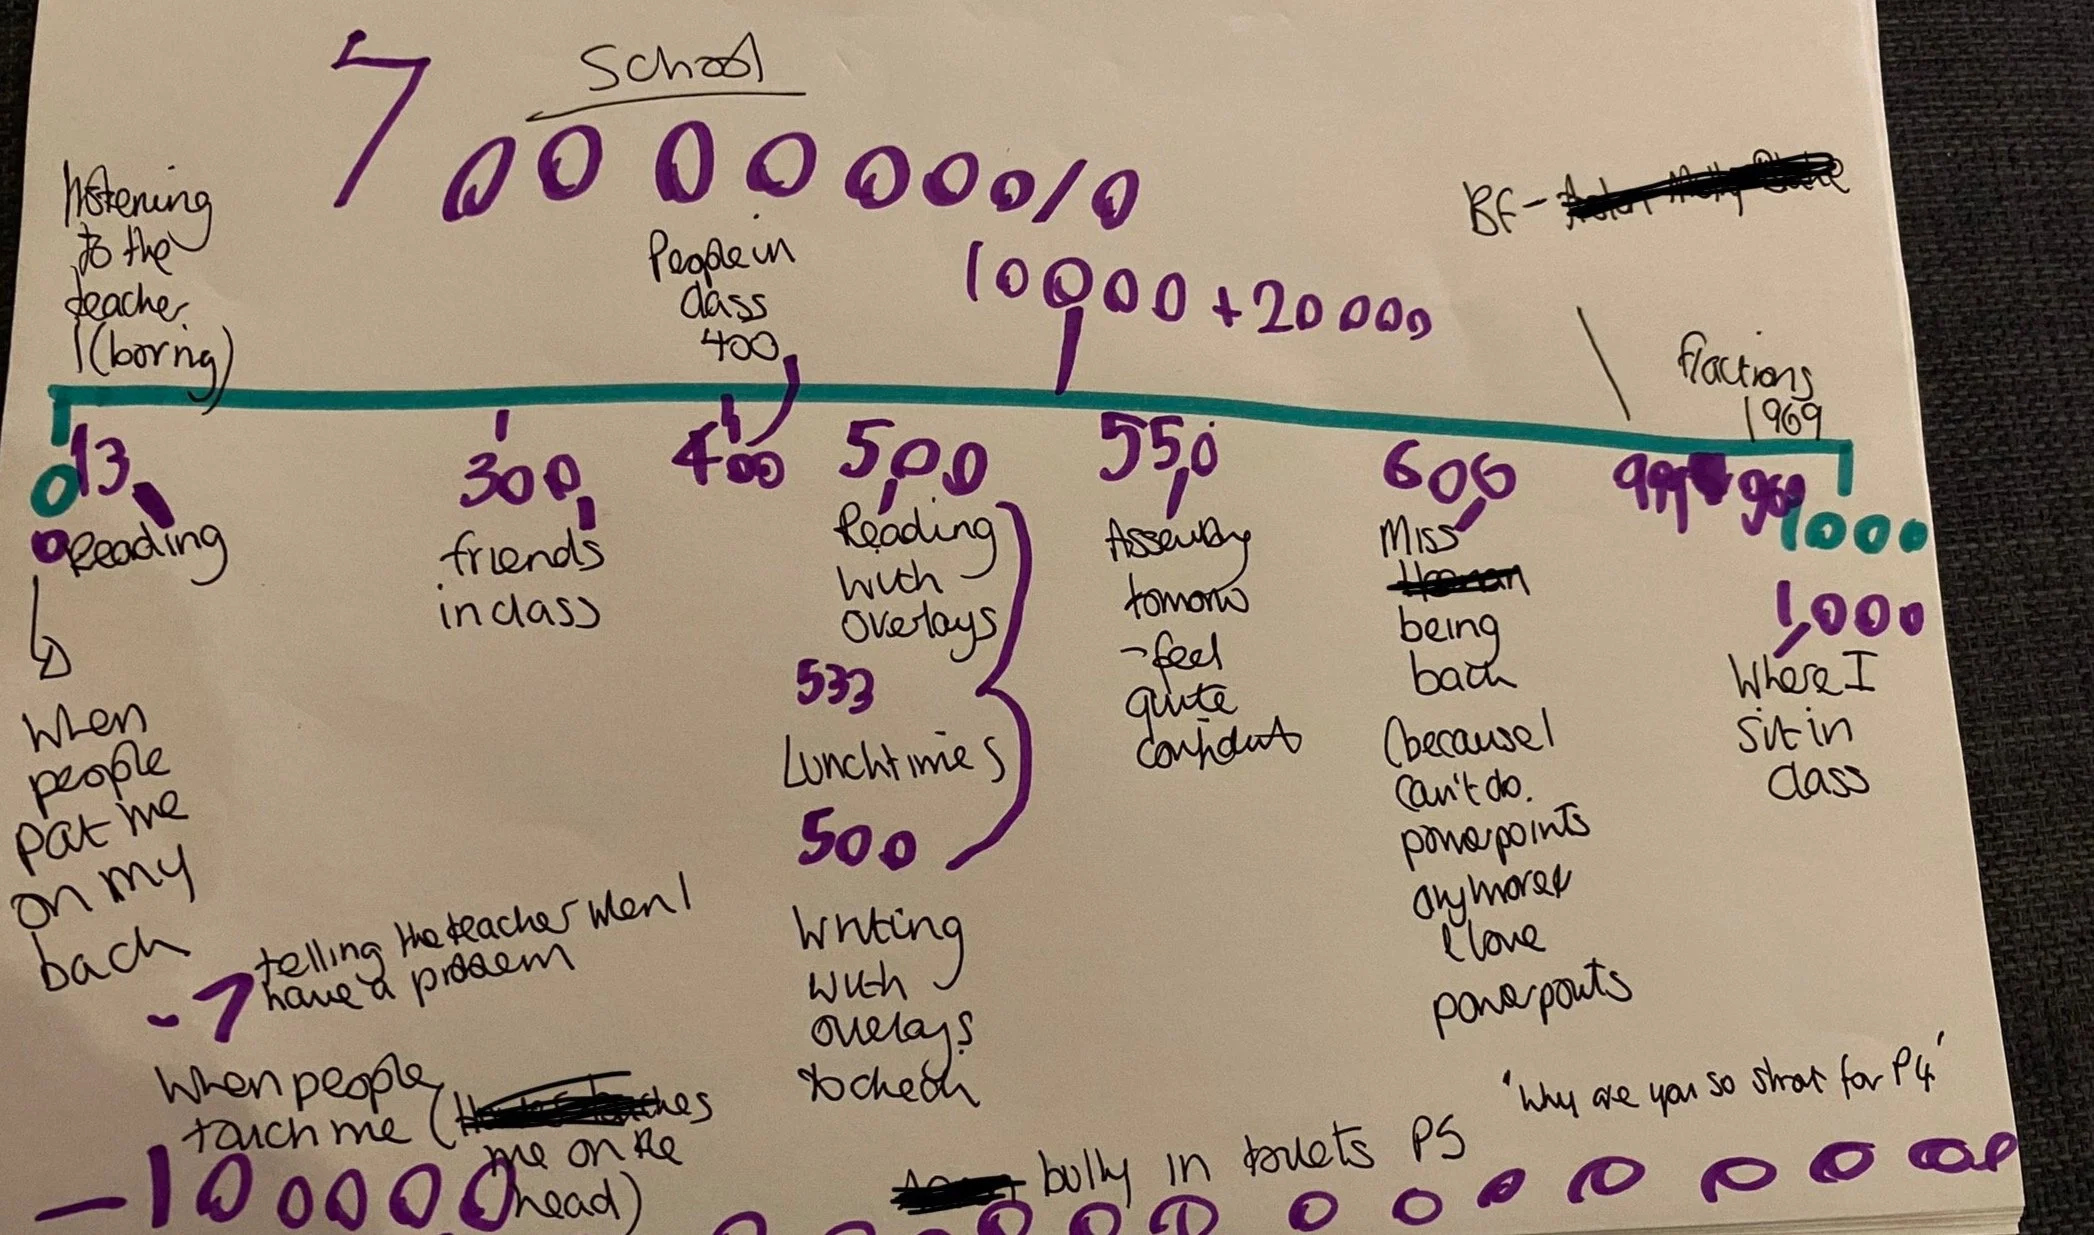 School
7 0000000/0
listening
to the
teacher
(boring)
People in
class
400
10000 + 20000
BF -
fractions
1969
0
13
300
400
500
550
600
999
1000
0
Reading
When
people
pat me
on my
back
friends
in class
Reading
with
overlays
533
Lunchtimes
500
Writing
with
overlays
to check
Assembly
tomorrow
- feel
quite
confident
Miss
being
back
(because I
can't do
powerpoints
anymore &
I love
powerpoints
1000
Where I
sit in
class
-7
telling the teacher when I
have a problem
When people
touch me (
me on the
head)
-100000
bully in toilets P5
'Why are you so short for P4'